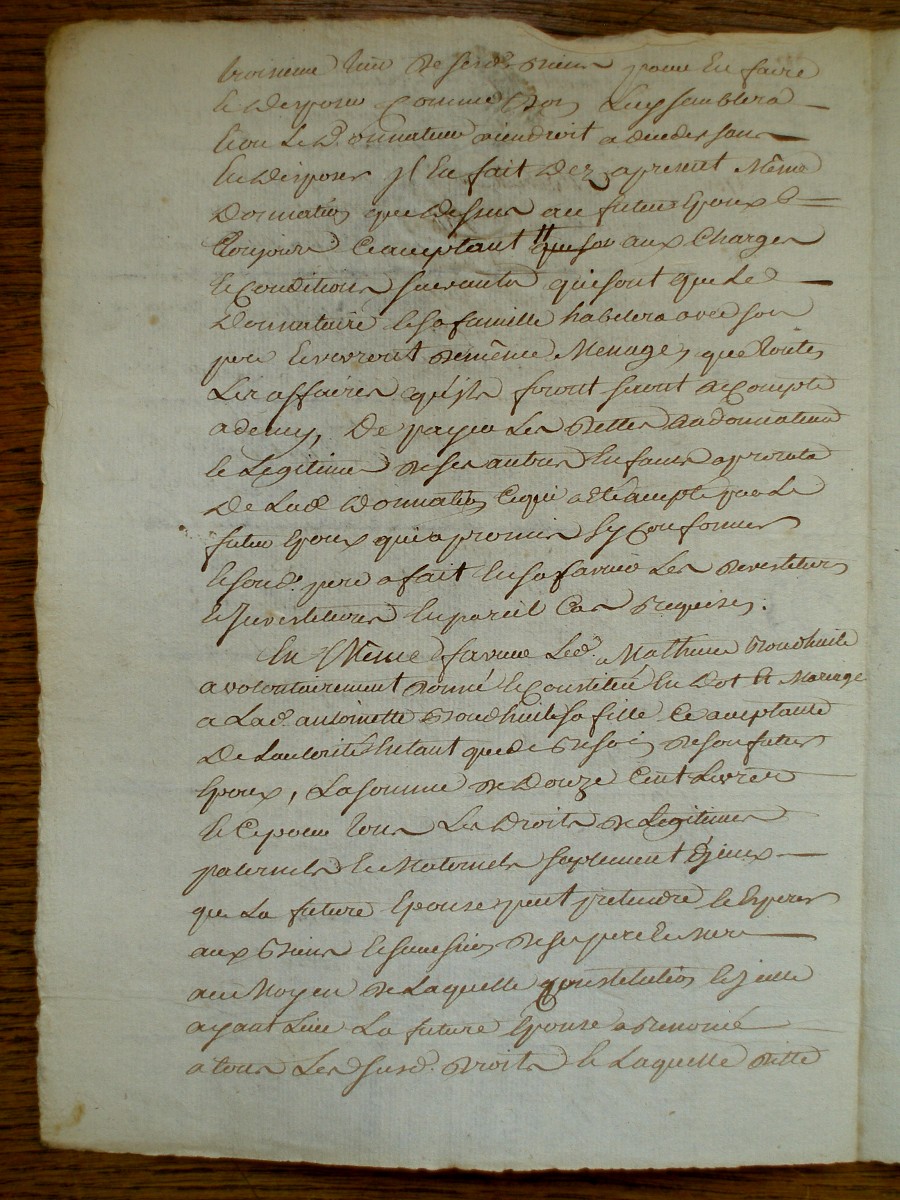 troisieme de ses d. biens pour en faire
et disposer comme bon luy semblera
et ou le d. donnateur viendroit a deceder sans
en disposer il en fait dez a present même
donnation que dessus au futur epoux
toujours acceptant que sou aux charges
et conditions suivantes qui sont que le
donnataire et sa famille habitera avec son
pere et vivront de même menage, que toutes
les affaires qu'ils feront seront a compte
a demy, de payer les dettes du donnateur
et legitimes de ses autres enfans a prorata
de lad. donnation ce qui a eté accepté par le
futur epoux qui a promis s'y conformer
et sond. pere a fait en sa faveur les devestitures
et investitures en pareil cas requises.
En même faveur led. Mathieu
a volontairement donné et constitué en dot et mariage
a lad. antoinette sa fille acceptante
de l'autorité entant que de besoin de son futur
epoux, la somme de douze cent livres
et ce pour tous les droits de legitimes
paternels et maternels suplement d'jceux
que la future epouse peut pretendre et esperer
aux biens et succession de ses pere et mere
au moyen de laquelle constitution et jcelle
ayant lieu la future epouse a renoncé
a tous les susd. droits et laquelle ditte